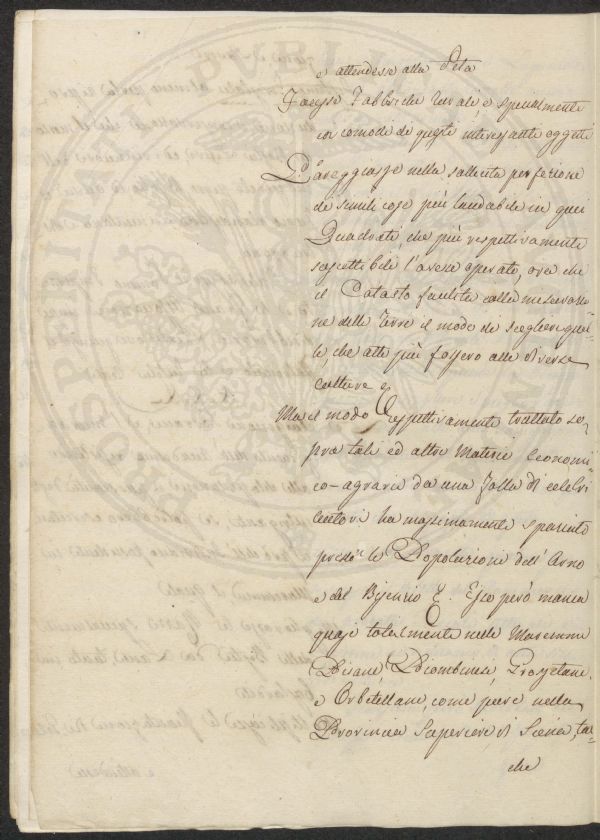 e attendesse alla Seta
Facesse Fabbriche Rurali, e specialmente
coi comodi di questi interessanti oggetti
Pareggiasse nella sollecita perfezione
di simili cose più laudabile in quei
Quadrati, che più respettivamente
suscettibili l'avesse operato, ora che
il Catasto facilita colla misurazio=
ne delle Terre il modo di scegliere quel=
le, che atte più fossero alle diverse
culture &.
Ma il modo respettivamente trattato so=
pra tali ed altre Materie Economi
co-agrarie da una folla di celebri
Scrittori ha massimamente spaziato
presso le Popolazione dell'Arno
e del Bisenzio &. Esso però manca
quasi totalmente nelle Maremme
Pisane, Piombinesi, Grossetane,
e Orbetellane, come pure nella
Provincia Superiore di Siena, tal=
che